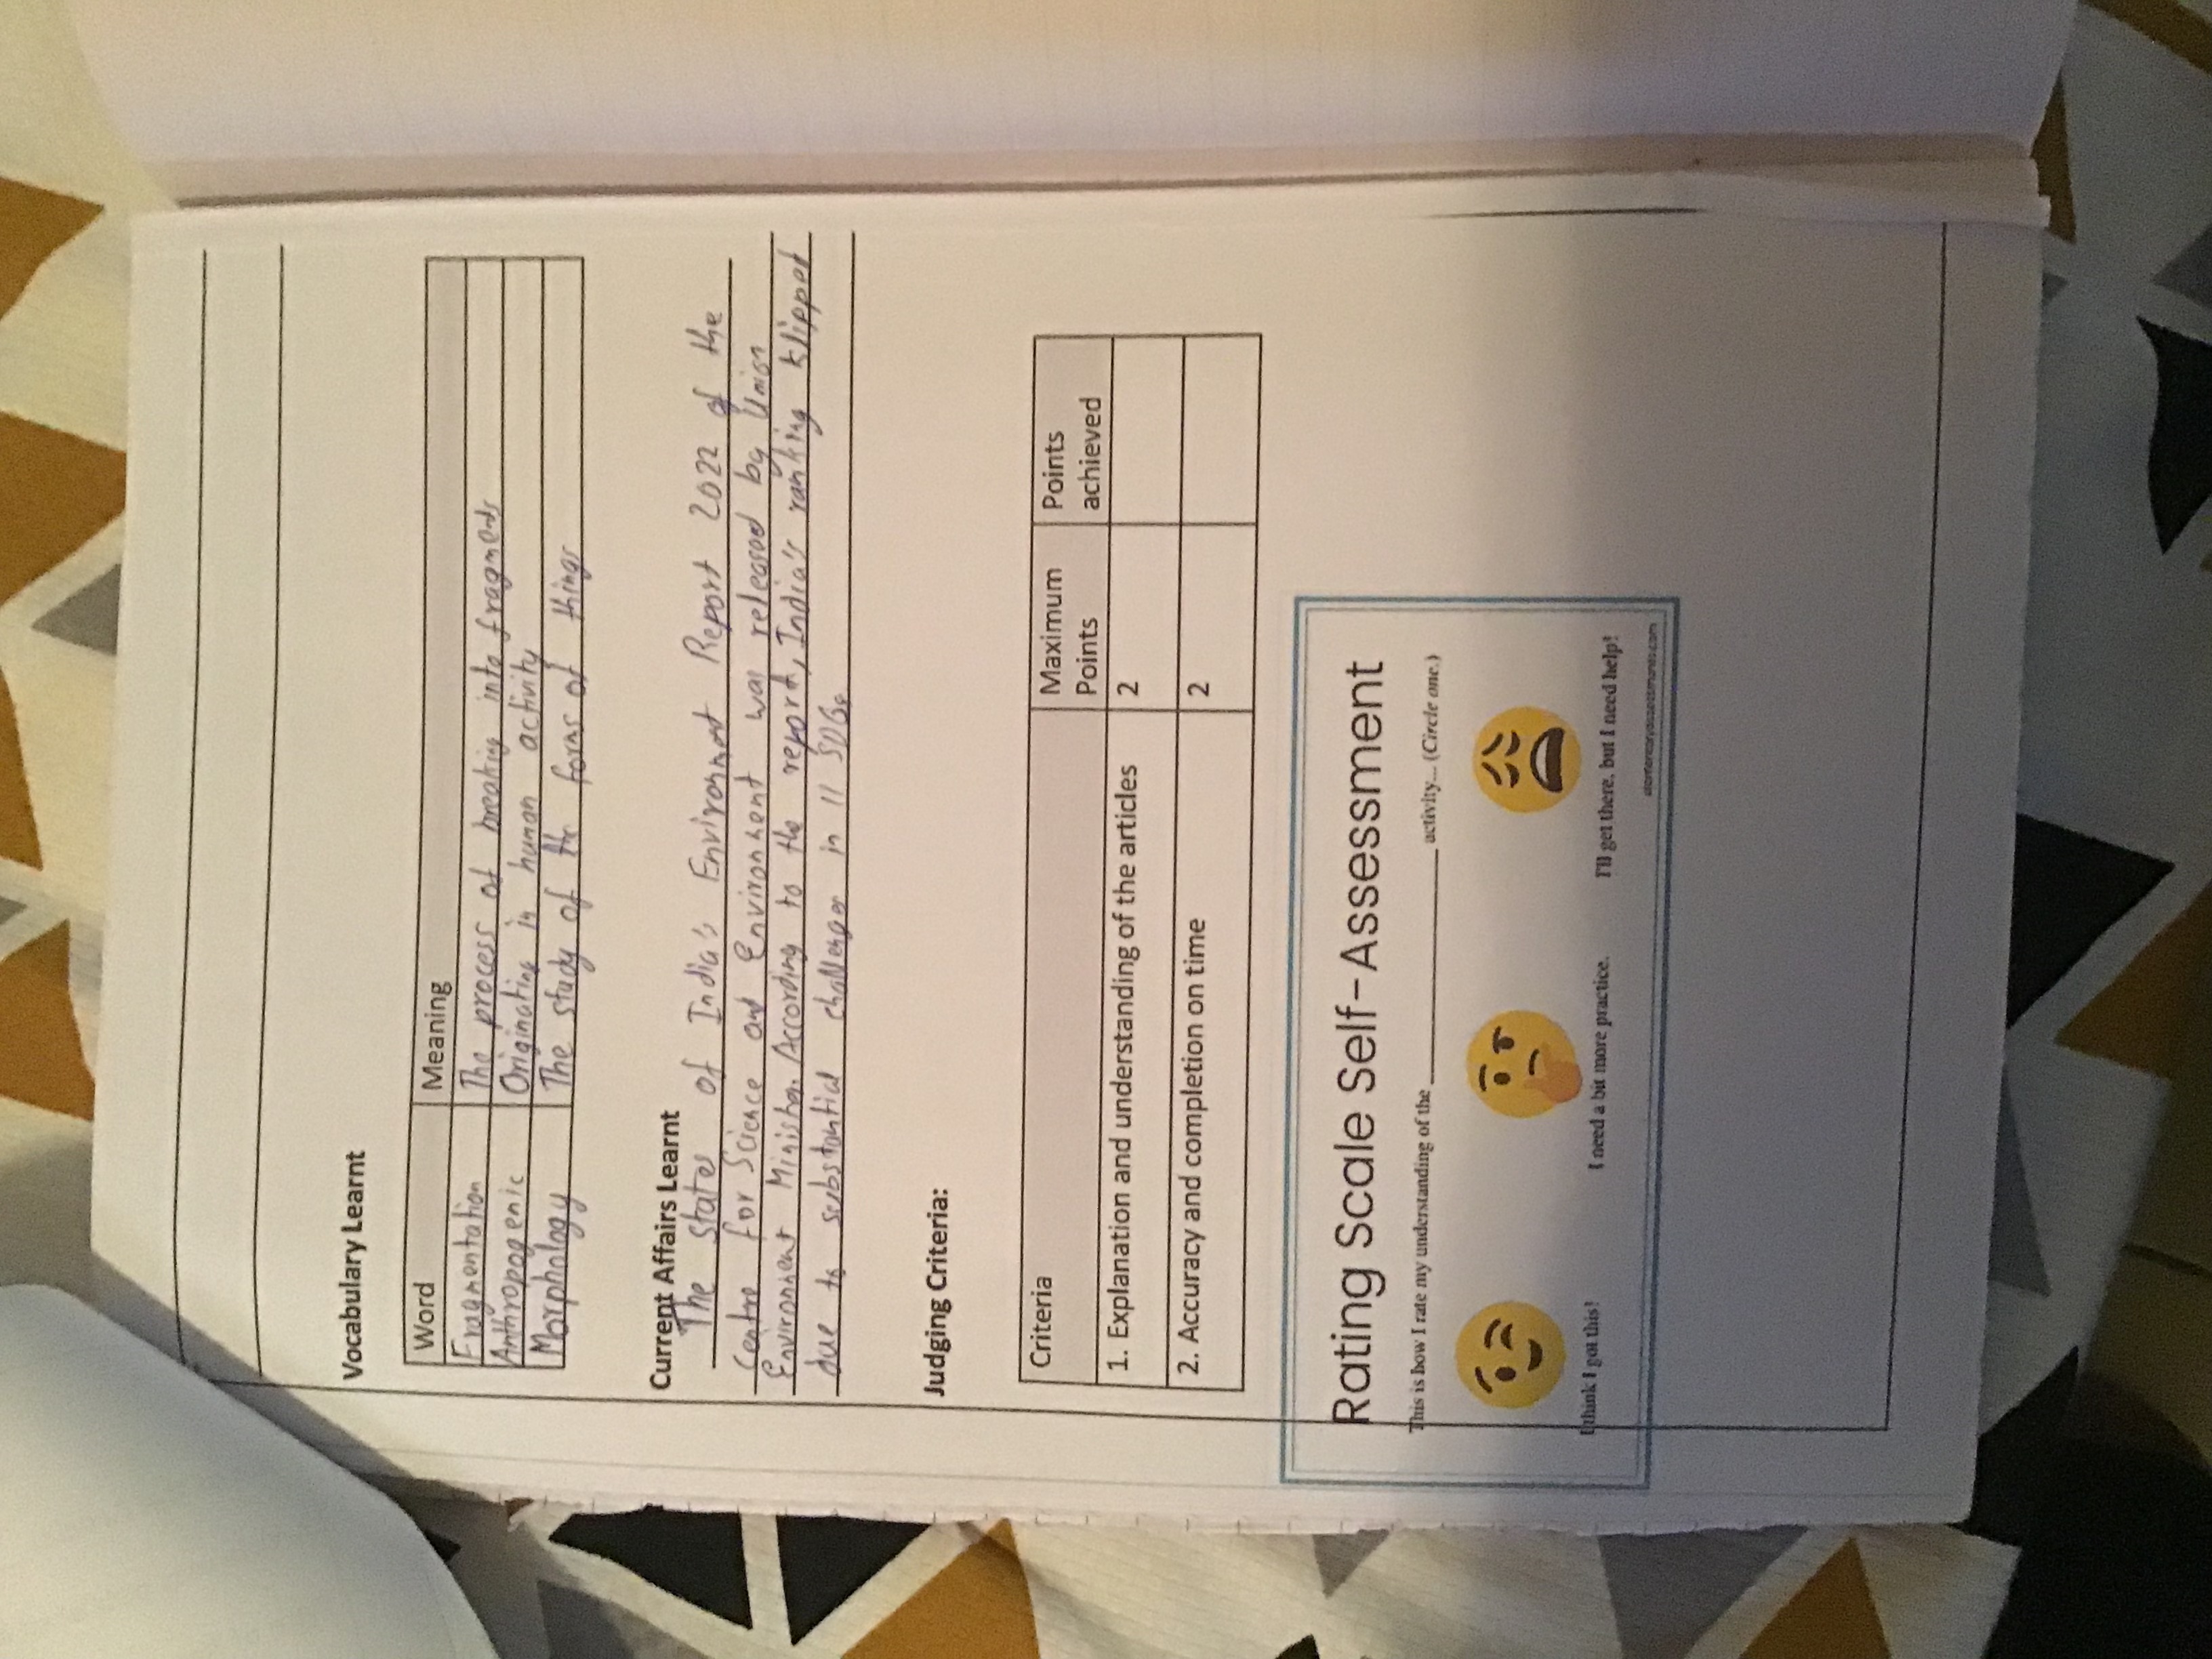 Vocabulary Learnt
Word Meaning
Fragmentation The process of breaking into fragments
Anthropogenic Originating in human activity
Morphology The study of the forms of things
Current Affairs Learnt
The states of India's Environment Report 2022 of the
Centre for Science and Environment was released by Union
Environment Minister. According to the report, India's ranking slipped
due to substantial challenges in 11 SDGs
Judging Criteria:
Criteria Maximum Points Points achieved
1. Explanation and understanding of the articles 2
2. Accuracy and completion on time 2
Rating Scale Self-Assessment
This is how I rate my understanding of the ____________ activity... (Circle one.)
I think I got this! I need a bit more practice. I'll get there, but I need help!